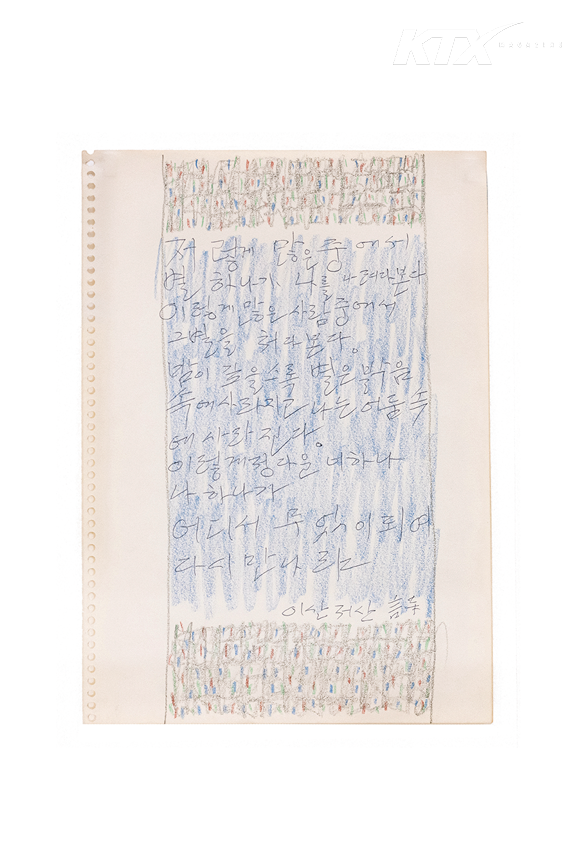 KTX MAGAZINE
저렇게 많은 중에서
별 하나가 나를 내려다본다
이렇게 많은 사람중에서
그별을 쳐다본다.
밤이 깊을수록 별은 밝음
속에 사라지고 나는 어둠속
에 사라진다.
이렇게 정다운 너하나
나 하나가
어디서 무엇이 되여
다시 만나랴
이산